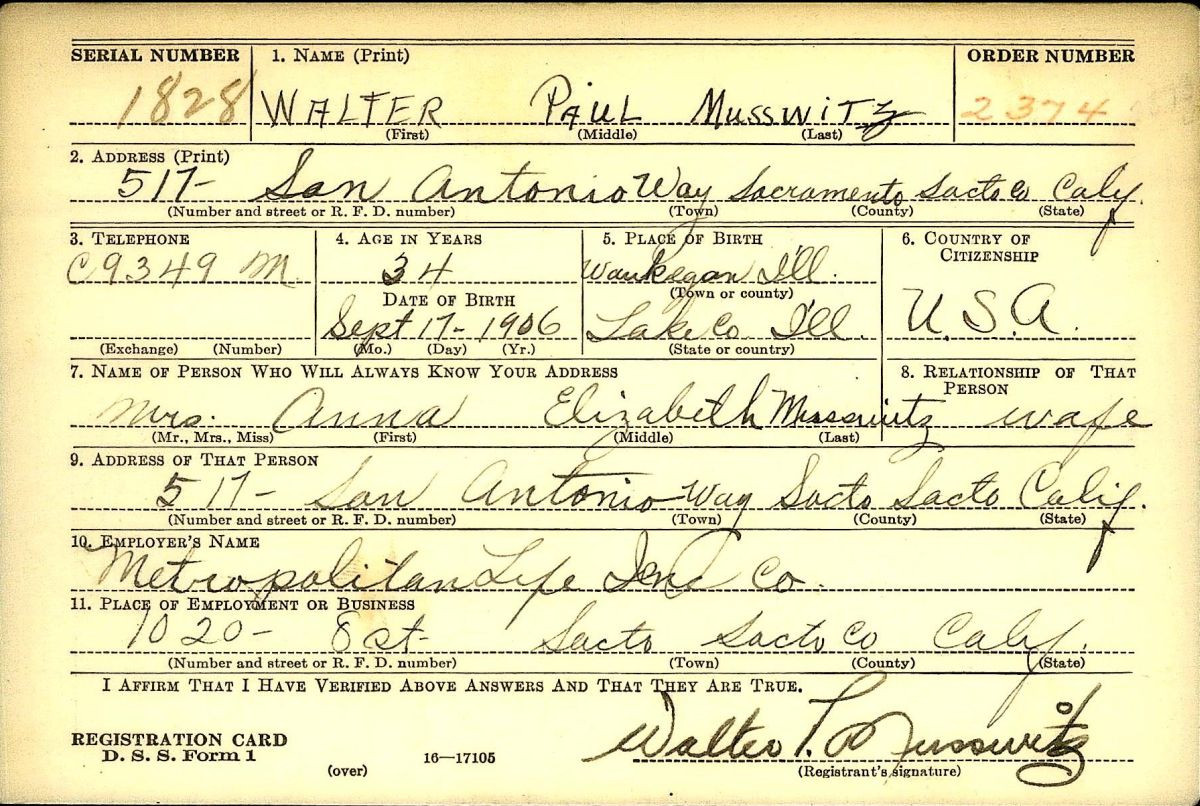 SERIAL NUMBER 1. NAME (Print) ORDER NUMBER
1828 WALTER PAUL MUSSWITZ 2374
(First) (Middle) (Last)
2. ADDRESS (Print)
517- San Antonio Way Sacramento Sacto Co Calif.
(Number and street or R. F. D. number) (Town) (County) (State)
3. TELEPHONE 4. AGE IN YEARS 5. PLACE OF BIRTH 6. COUNTRY OF CITIZENSHIP
C9349 M. 34 Waukegan Ill.
(Town or county)
DATE OF BIRTH
Sept 17- 1906 Lake Co. Ill. U.S.A.
(Exchange) (Number) (Mo.) (Day) (Yr.) (State or country)
7. NAME OF PERSON WHO WILL ALWAYS KNOW YOUR ADDRESS 8. RELATIONSHIP OF THAT PERSON
Mrs. Anna Elizabeth Musswitz wife
(Mr., Mrs., Miss) (First) (Middle) (Last)
9. ADDRESS OF THAT PERSON
517- San Antonio Way Sacto Sacto Calif.
(Number and street or R. F. D. number) (Town) (County) (State)
10. EMPLOYER'S NAME
Metropolitan Life Ins Co.
11. PLACE OF EMPLOYMENT OR BUSINESS
1020- 8 st- Sacto Sacto Co Calif.
(Number and street or R. F. D. number) (Town) (County) (State)
I AFFIRM THAT I HAVE VERIFIED ABOVE ANSWERS AND THAT THEY ARE TRUE.
Walter P. Musswitz
REGISTRATION CARD
D. S. S. Form 1 16—17105
(over) (Registrant's signature)